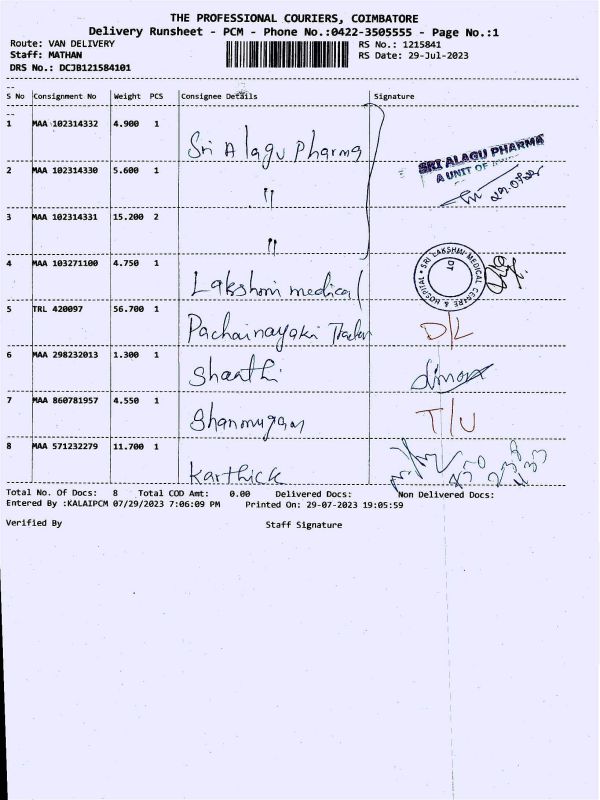 THE PROFESSIONAL COURIERS, COIMBATORE
Delivery Runsheet - PCM - Phone No.:0422-3505555 - Page No.:1
Route: VAN DELIVERY RS No.: 1215841
Staff: MATHAN RS Date: 29-Jul-2023
DRS No.: DCJB121584101
S No Consignment No Weight PCS Consignee Details Signature
1 MAA 102314332 4.900 1
Sri Alagu Pharma SRI ALAGU PHARMA
A UNIT OF
2 MAA 102314330 5.600 1
"
3 MAA 102314331 15.200 2
"
4 MAA 103271100 4.750 1
Lakshmi medical SRI LAKSHMI MEDICAL CENTRE & HOSPITAL
5 TRL 420097 56.700 1
Pachainayaki D/L
6 MAA 298232013 1.300 1
Shanthi
7 MAA 860781957 4.550 1
Shanmugam T/U
8 MAA 571232279 11.700 1
Karthick
Total No. Of Docs: 8 Total COD Amt: 0.00 Delivered Docs: Non Delivered Docs:
Entered By :KALAIPCM 07/29/2023 7:06:09 PM Printed On: 29-07-2023 19:05:59
Verified By Staff Signature